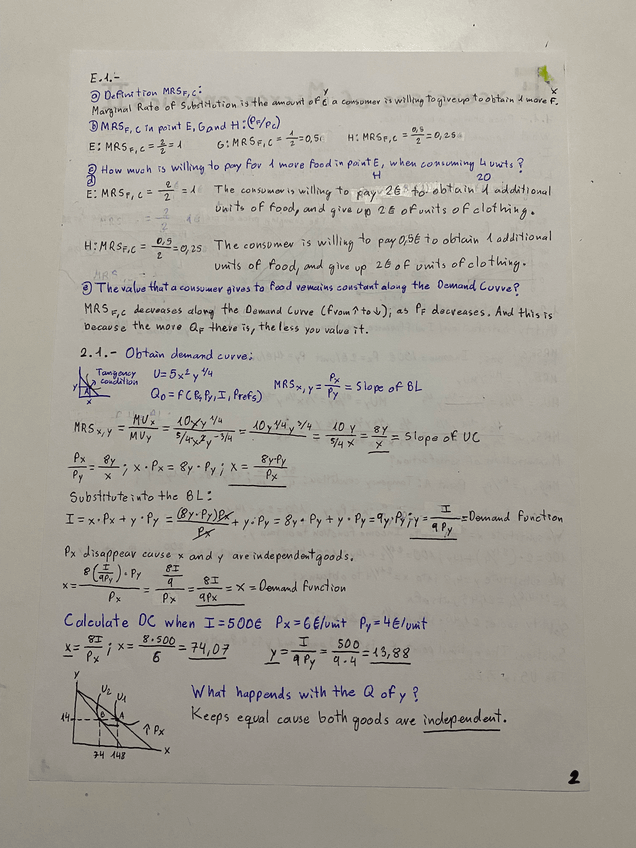 E.1.-
a) Definition MRS F,C:
Marginal Rate of Substitution is the amount of C y a consumer is willing to give up to obtain 1 more F. x
b) MRS F,C in point E, G and H: (PF/PC)
E: MRS F,C = 2/2 = 1 G: MRS F,C = 1/2 = 0,5 H: MRS F,C = 0,5/2 = 0,25
c) How much is willing to pay for 1 more food in point E, when consuming 4 units?
d) H 20
E: MRS F,C = 2/2 = 1 The consumer is willing to pay 2€ to obtain 1 additional
units of food, and give up 2€ of units of clothing.
H: MRS F,C = 0,5/2 = 0,25 The consumer is willing to pay 0,5€ to obtain 1 additional
units of food, and give up 2€ of units of clothing.
e) The value that a consumer gives to food remains constant along the Demand Curve?
MRS F,C decreases along the Demand Curve (from ↑ to ↓); as PF decreases. And this is
because the more QF there is, the less you value it.
2.1.- Obtain demand curve:
y A x Tangency condition U = 5x² y^1/4
QD = f(Px, Py, I, Prefs) MRS x,y = Px/Py = Slope of BL
MRS x,y = MUx/MUy = 10xy^1/4 / 5/4 x² y^-3/4 = 10y^1/4 y^3/4 / 5/4 x = 10y / 5/4 x = 8y/x = Slope of UC
Px/Py = 8y/x ; x·Px = 8y·Py ; x = 8y·Py/Px
Substitute into the BL:
I = x·Px + y·Py = (8y·Py)Px/Px + y·Py = 8y·Py + y·Py = 9y·Py ; y = I/9Py = Demand function
Px disappear cause x and y are independent goods.
x = 8(I/9Py)·Py / Px = 8I/9 / Px = 8I/9Px = x = Demand function
Calculate DC when I = 500€ Px = 6€/unit Py = 4€/unit
x = 8I/Px ; x = 8·500/6 = 74,07 y = I/9Py = 500/9·4 = 13,88
y U2 U1 14 B A ↑Px 74 148 x
What happends with the Q of y?
Keeps equal cause both goods are independent.
2